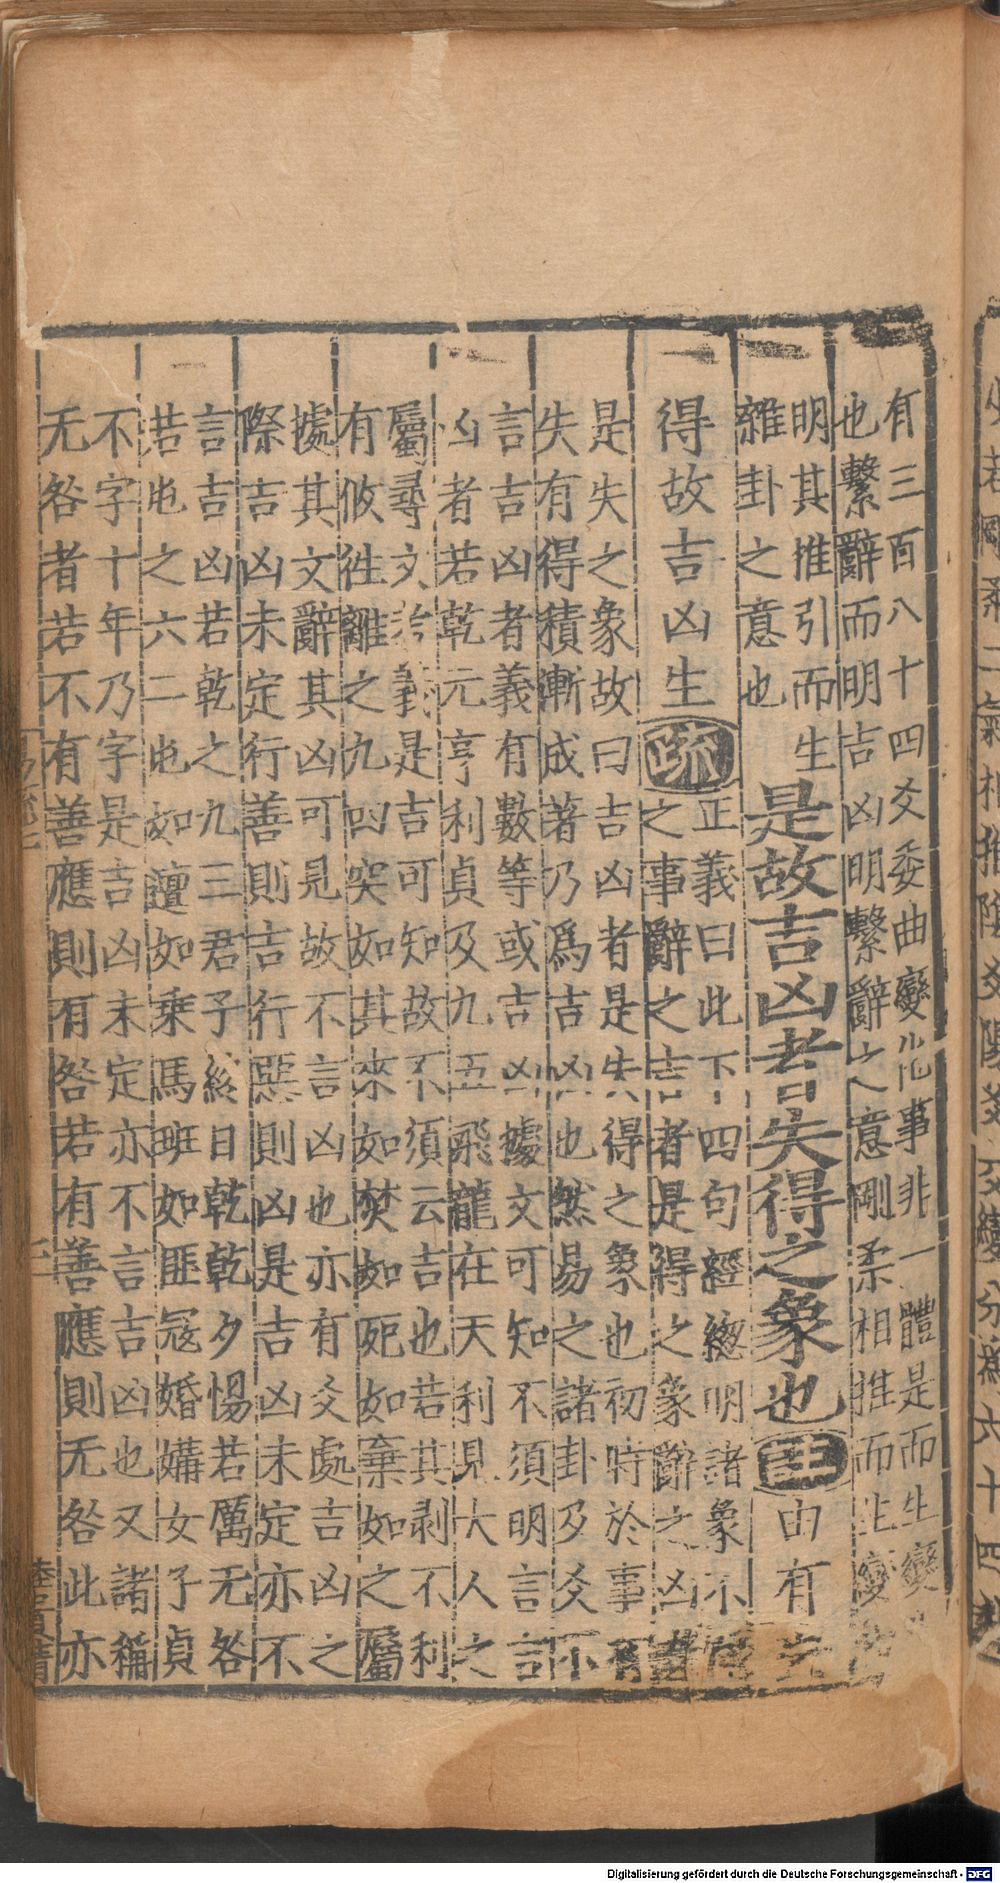 有三百八十四爻委曲變化事非一體是而生變
也繫辭而明吉凶明繫辭之意剛柔相推而生變
明其推引而生
雜卦之意也
是故吉凶者失得之象也
註
由有失
得故吉凶生
疏
正義曰此下四句經緫明諸象不同
之事辭之吉者是得之象辭之凶者
是失之象故曰吉凶者是失得之象也初時於事有
失有得積漸成著乃爲吉凶也然易之諸卦及爻不
言吉凶者義有數等或吉凶據文可知不須明言言
凶者若乾元亨利貞及九五飛龍在天利見大人之
屬尋文考義是吉可知故不須云吉也若其剥不利
有攸往離之九四突如其來如焚如死如棄如之屬
據其文辭其凶可見故不言凶也亦有爻處吉凶之
際吉凶未定行善則吉行惡則凶是吉凶未定亦不
言吉凶若乾之九三君子終日乾乾夕惕若厲无咎
若屯之六二屯如邅如乘馬班如匪冦婚媾女子貞
不字十年乃字是吉凶未定亦不言吉凶也又諸稱
无咎者若不有善應則有咎若有善應則无咎此亦
Digitalisierung gefördert durch die Deutsche Forschungsgemeinschaft - DFG